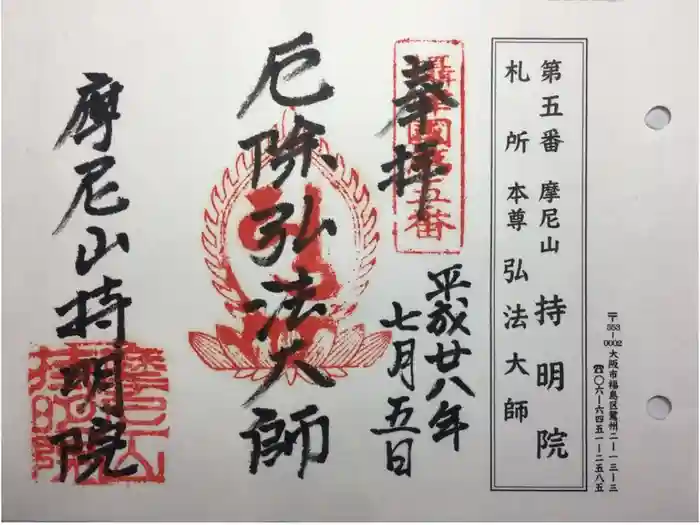 第五番 摩尼山 持明院
札所 本尊 弘法大師
〒553-0002 大阪市福島区鷺州二-一三-三
☎〇六-六四五一-二五八五
奉拝
平成廿八年
七月五日
厄除弘法大師
摩尼山持明院